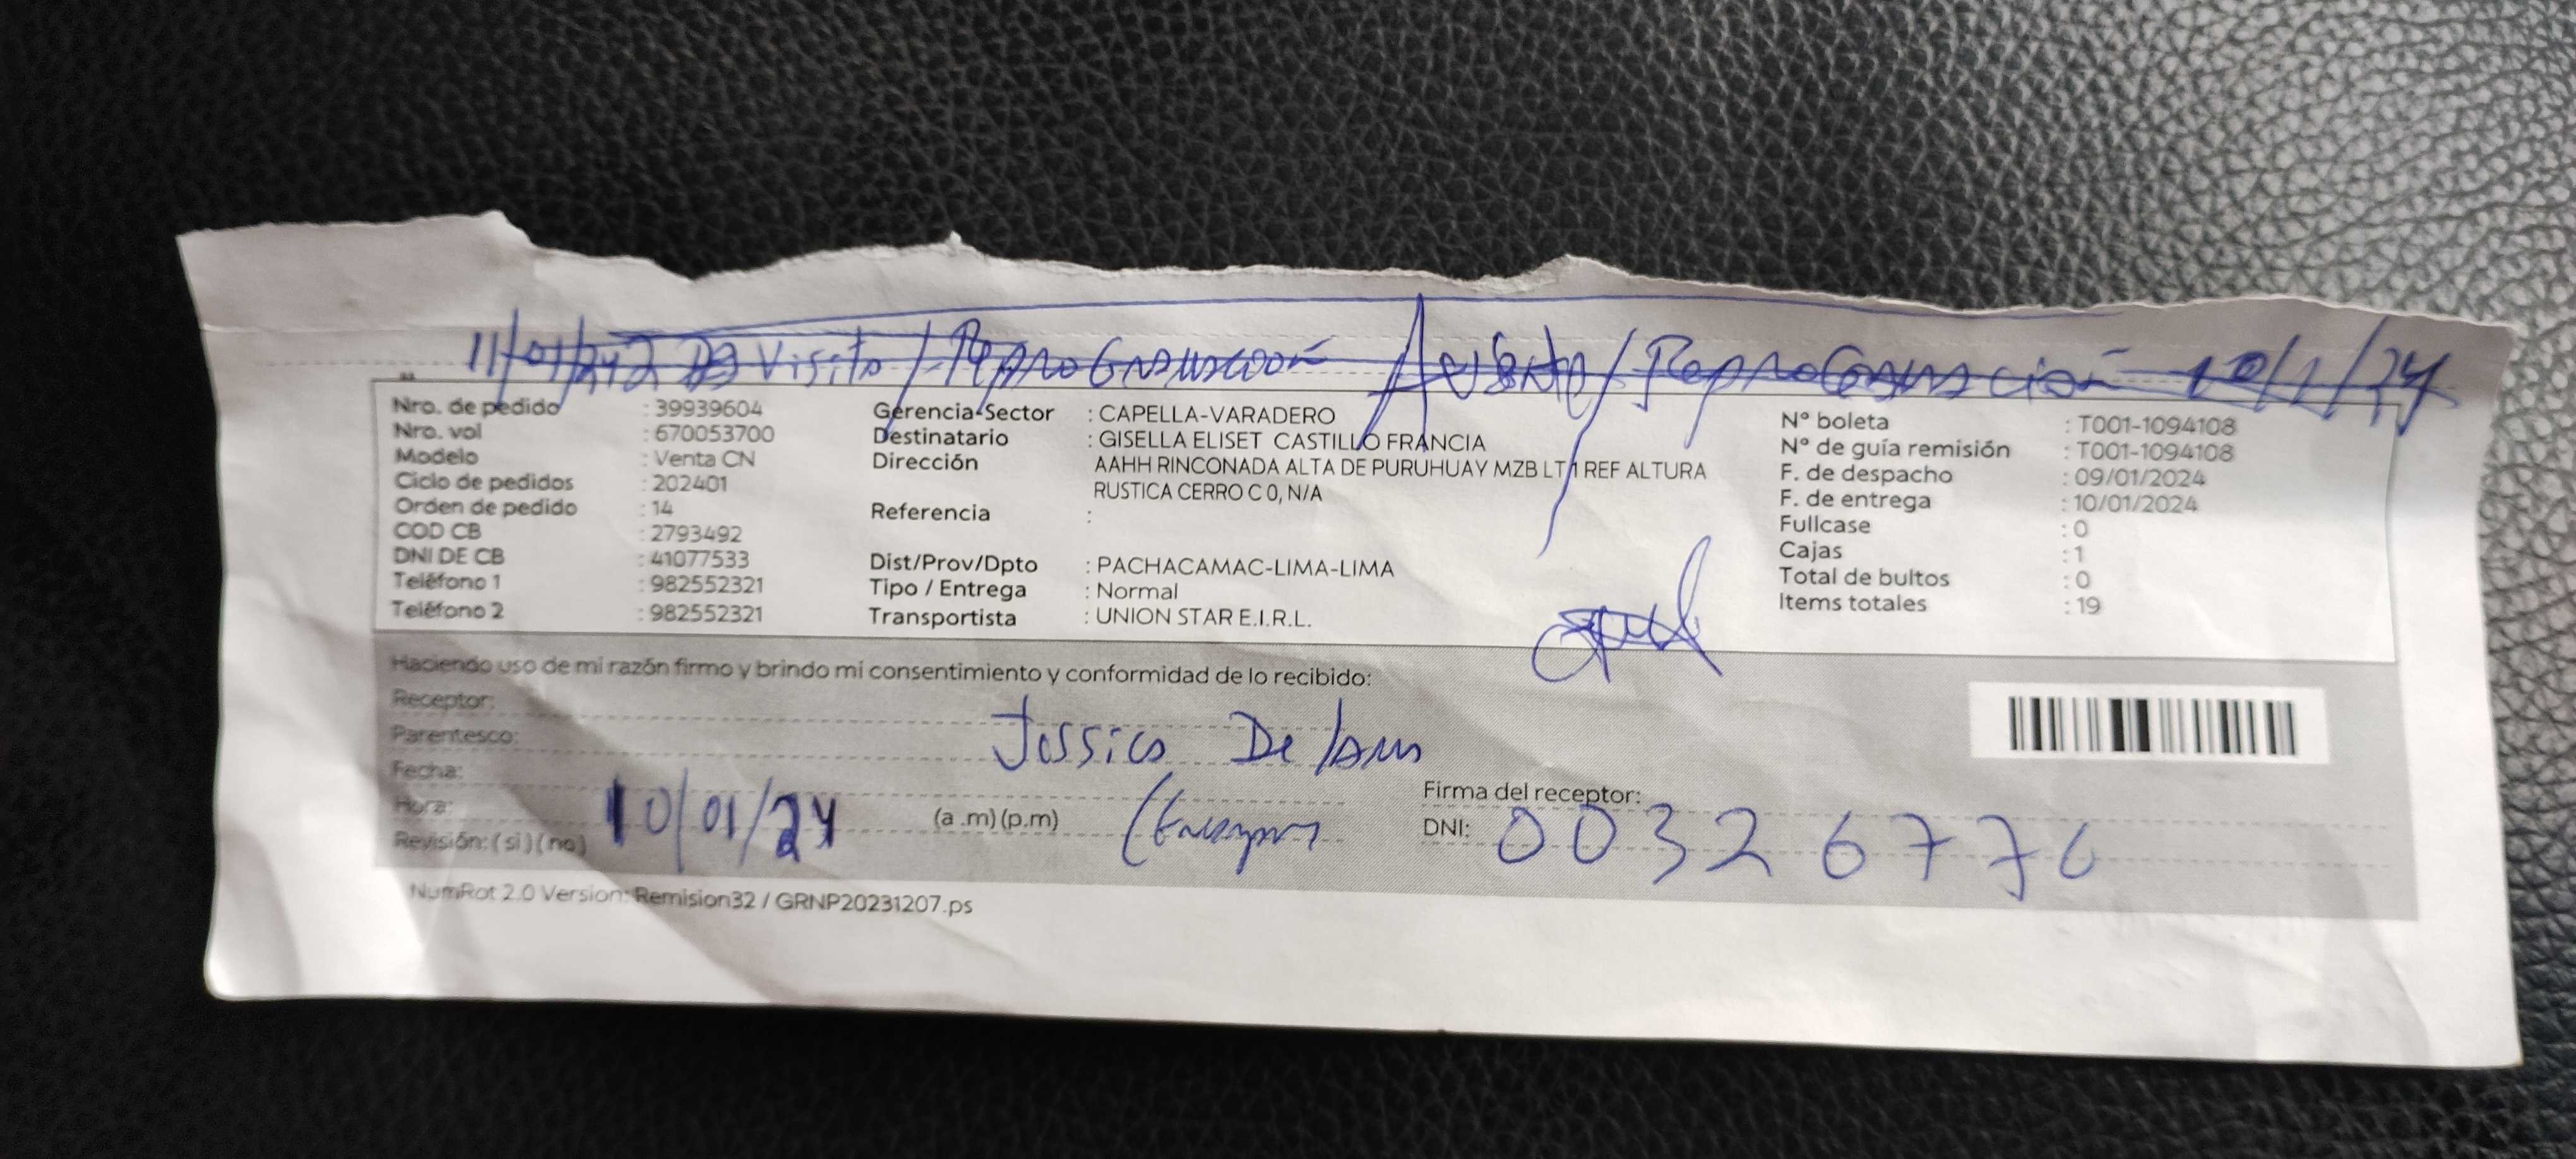 11/01/24 2 Visita / Reprogramación Ausente / Reprogramación 10/1/24
Nro. de pedido : 39939604
Nro. vol : 670053700
Modelo : Venta CN
Ciclo de pedidos : 202401
Orden de pedido : 14
COD CB : 2793492
DNI DE CB : 41077533
Teléfono 1 : 982552321
Teléfono 2 : 982552321
Gerencia-Sector : CAPELLA-VARADERO
Destinatario : GISELLA ELISET CASTILLO FRANCIA
Dirección AAHH RINCONADA ALTA DE PURUHUAY MZB LT 1 REF ALTURA
RUSTICA CERRO C 0, N/A
Referencia :
Dist/Prov/Dpto : PACHACAMAC-LIMA-LIMA
Tipo / Entrega : Normal
Transportista : UNION STAR E.I.R.L.
N° boleta : T001-1094108
N° de guía remisión : T001-1094108
F. de despacho : 09/01/2024
F. de entrega : 10/01/2024
Fullcase : 0
Cajas : 1
Total de bultos : 0
Items totales : 19
Haciendo uso de mi razón firmo y brindo mi consentimiento y conformidad de lo recibido:
Receptor:
Jessica De
Parentesco:
Fecha:
Hora: 10/01/24 (a .m) (p.m)
Revisión: ( si ) ( no )
Firma del receptor:
DNI: 00326770
NumRot 2.0 Version: Remision32 / GRNP20231207.ps